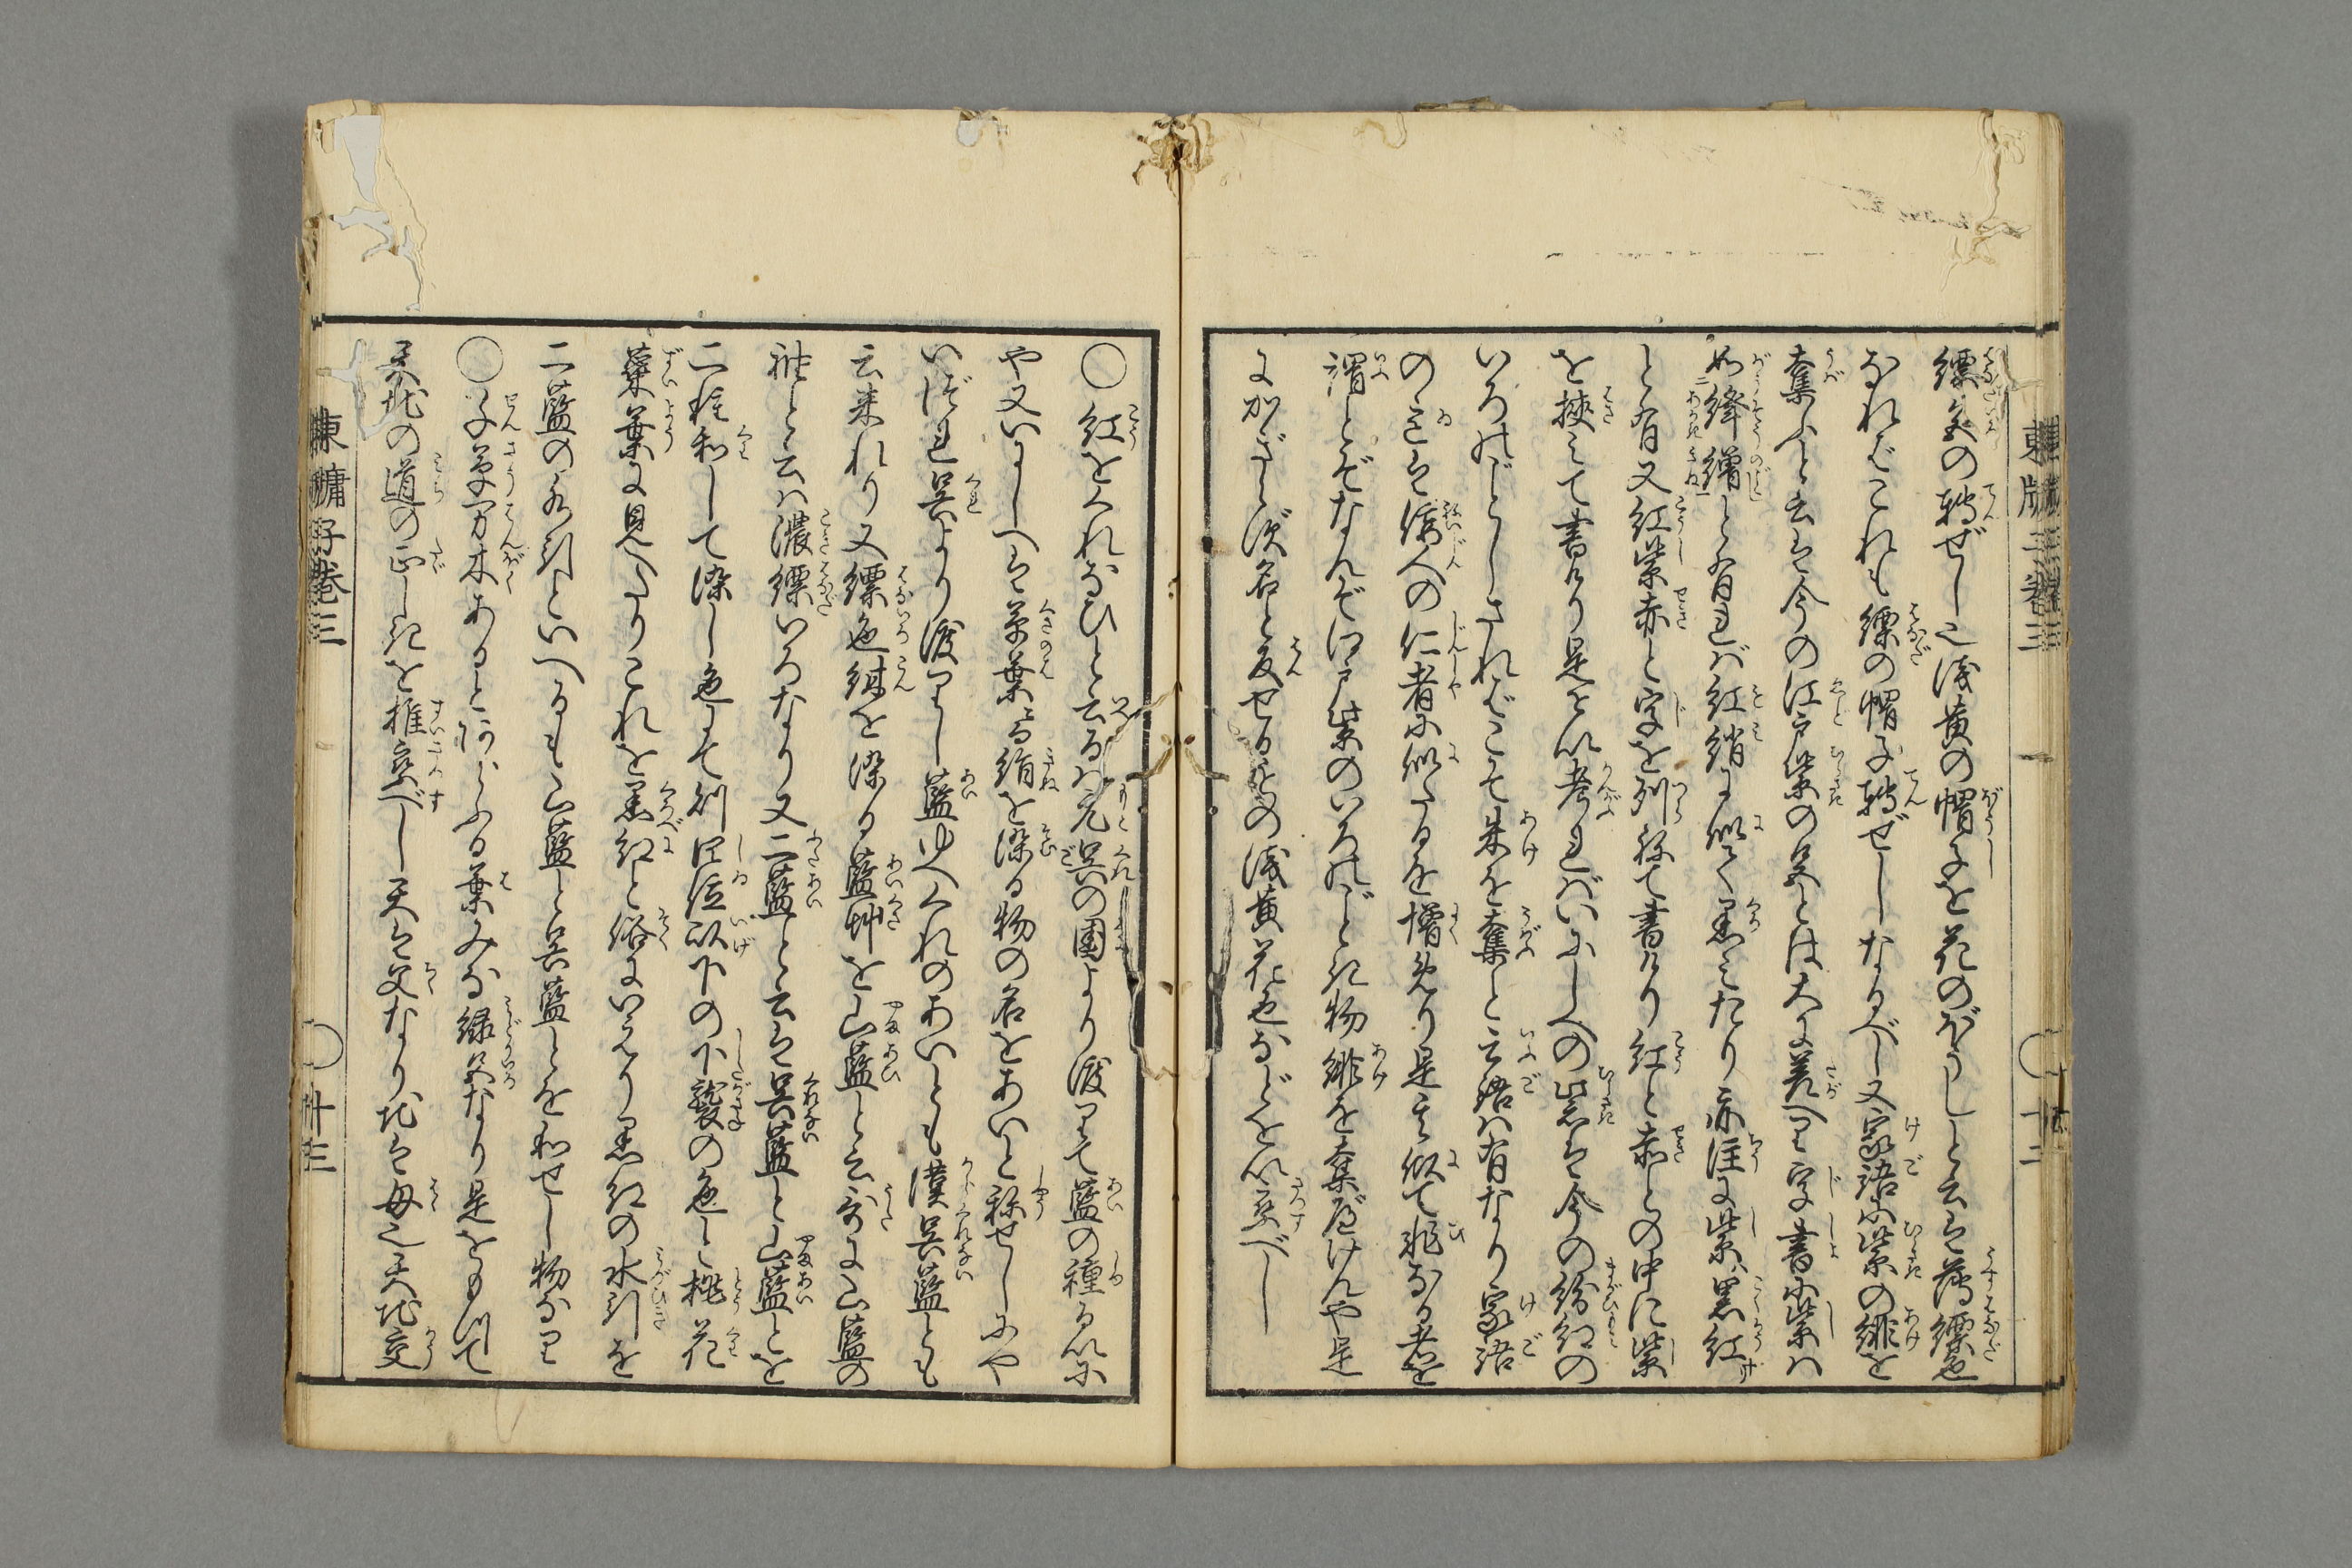 縹色の轉ぜし也浅黄の帽子を花のばうしと云は薄縹色
なればこれも縹の帽子轉ぜしなるべし又家語に紫の緋を
奪ふと云は今の江戸紫の色とは大に差へり字書に紫ハ
如絳繒と有れば紅絹に似て黒みたり亦注に紫ハ黒紅
と有又紅紫赤と字を列ねて書けり紅と赤との中に紫
を挾みて書けり是を以考ればいにしへの紫は今の紛紅の
いろのごとしさればこそ朱を奪と云語ハ有なり家語
の意は佞人の仁者に似たるを憎めり是其似て非なる者を
謂とぞなんぞ江戸紫のいろのごとき物緋を奪べけんや是
にかぎらず名と反せるもの浅黄花色などを以察べし
○紅をくれなひと云るハ元呉の國より渡りて藍の種るいに
や又いにしへは草葉にて絹を染る物の名をあいと称せしにや
いづれ呉より渡りし藍ゆへくれのあいとも漢呉藍とも
云来れり又縹色紺を染る藍艸を山藍と云哥に山藍の
袖と云ハ濃縹いろなり又二藍と云は呉藍と山藍とを
二種和して染し色にて別江位以下の下襲の色と桃花
蘂葉に見へたりこれを黒紅と俗にいえり黒紅の水引を
二藍の水引といへるも山藍と呉藍とを和せし物なり
○千草万木あると何ふる葉みな緑色なり是をもつて
天地の道の正しきを推察べし天は父なり地は母也天地交
東牖子巻三　○廿三